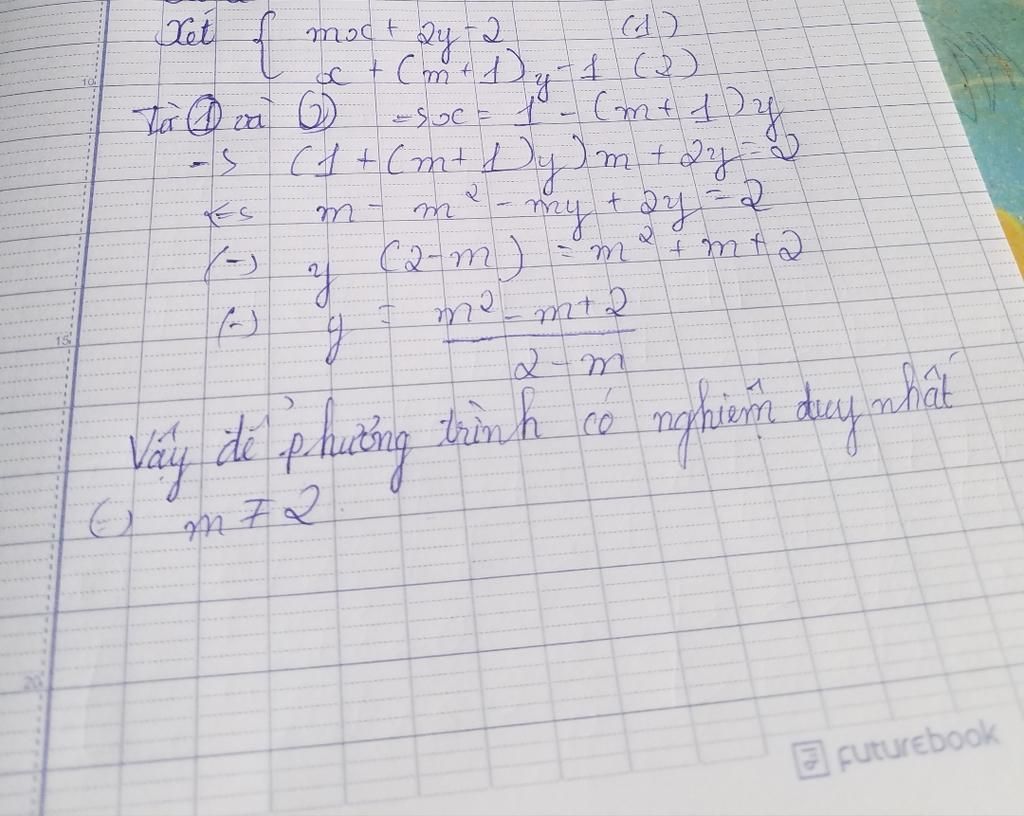 Xét { mx + 2y = 2 (1)
x + (m+1)y = 1 (2)
Từ ① và ② => x = 1 - (m+1)y
=> (1+(m+1)y)m + 2y = 2
<=> m - m² - my + 2y = 2
(=) y (2-m) = m² + m + 2
(=) y = m² - m + 2
2 - m
Vậy để phương trình có nghiệm duy nhất
(=) m ≠ 2
10
15
20
futurebook